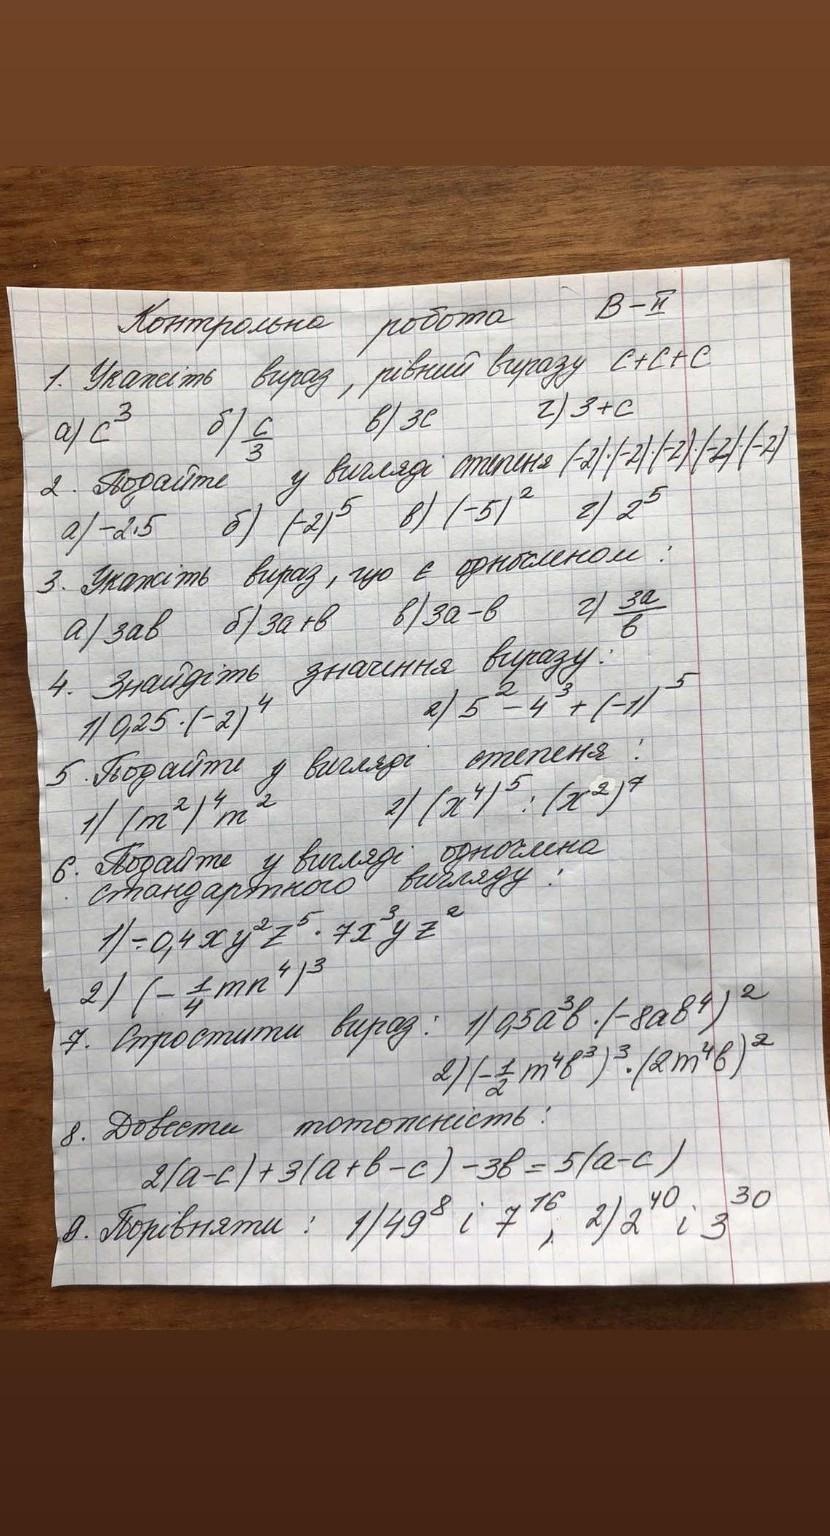 Контрольна робота В-ІІ
1. Укажіть вираз, рівний виразу c+c+c
а) c³ б) c/3 в) 3c г) 3+c
2. Подайте у вигляді степеня (-2)·(-2)·(-2)·(-2)·(-2)
а) -2·5 б) (-2)⁵ в) (-5)² г) 2⁵
3. Укажіть вираз, що є одночленом:
а) 3ав б) 3а+в в) 3а-в г) 3а/в
4. Знайдіть значення виразу:
1) 0,25·(-2)⁴ 2) 5²-4³+(-1)⁵
5. Подайте у вигляді степеня:
1) (m²)⁴m² 2) (x⁴)⁵:(x²)⁷
6. Подайте у вигляді одночлена
стандартного вигляду:
1) -0,4xy²z⁵·7x³yz²
2) (-1/4mn⁴)³
7. Спростити вираз: 1) 0,5а³в·(-8ав⁴)²
2) (-1/2m⁴в³)³·(2m⁴в)²
8. Довести тотожність:
2(а-с)+3(а+в-с)-3в=5(а-с)
9. Порівняти: 1) 49⁸ і 7¹⁶, 2) 2⁴⁰ і 3³⁰